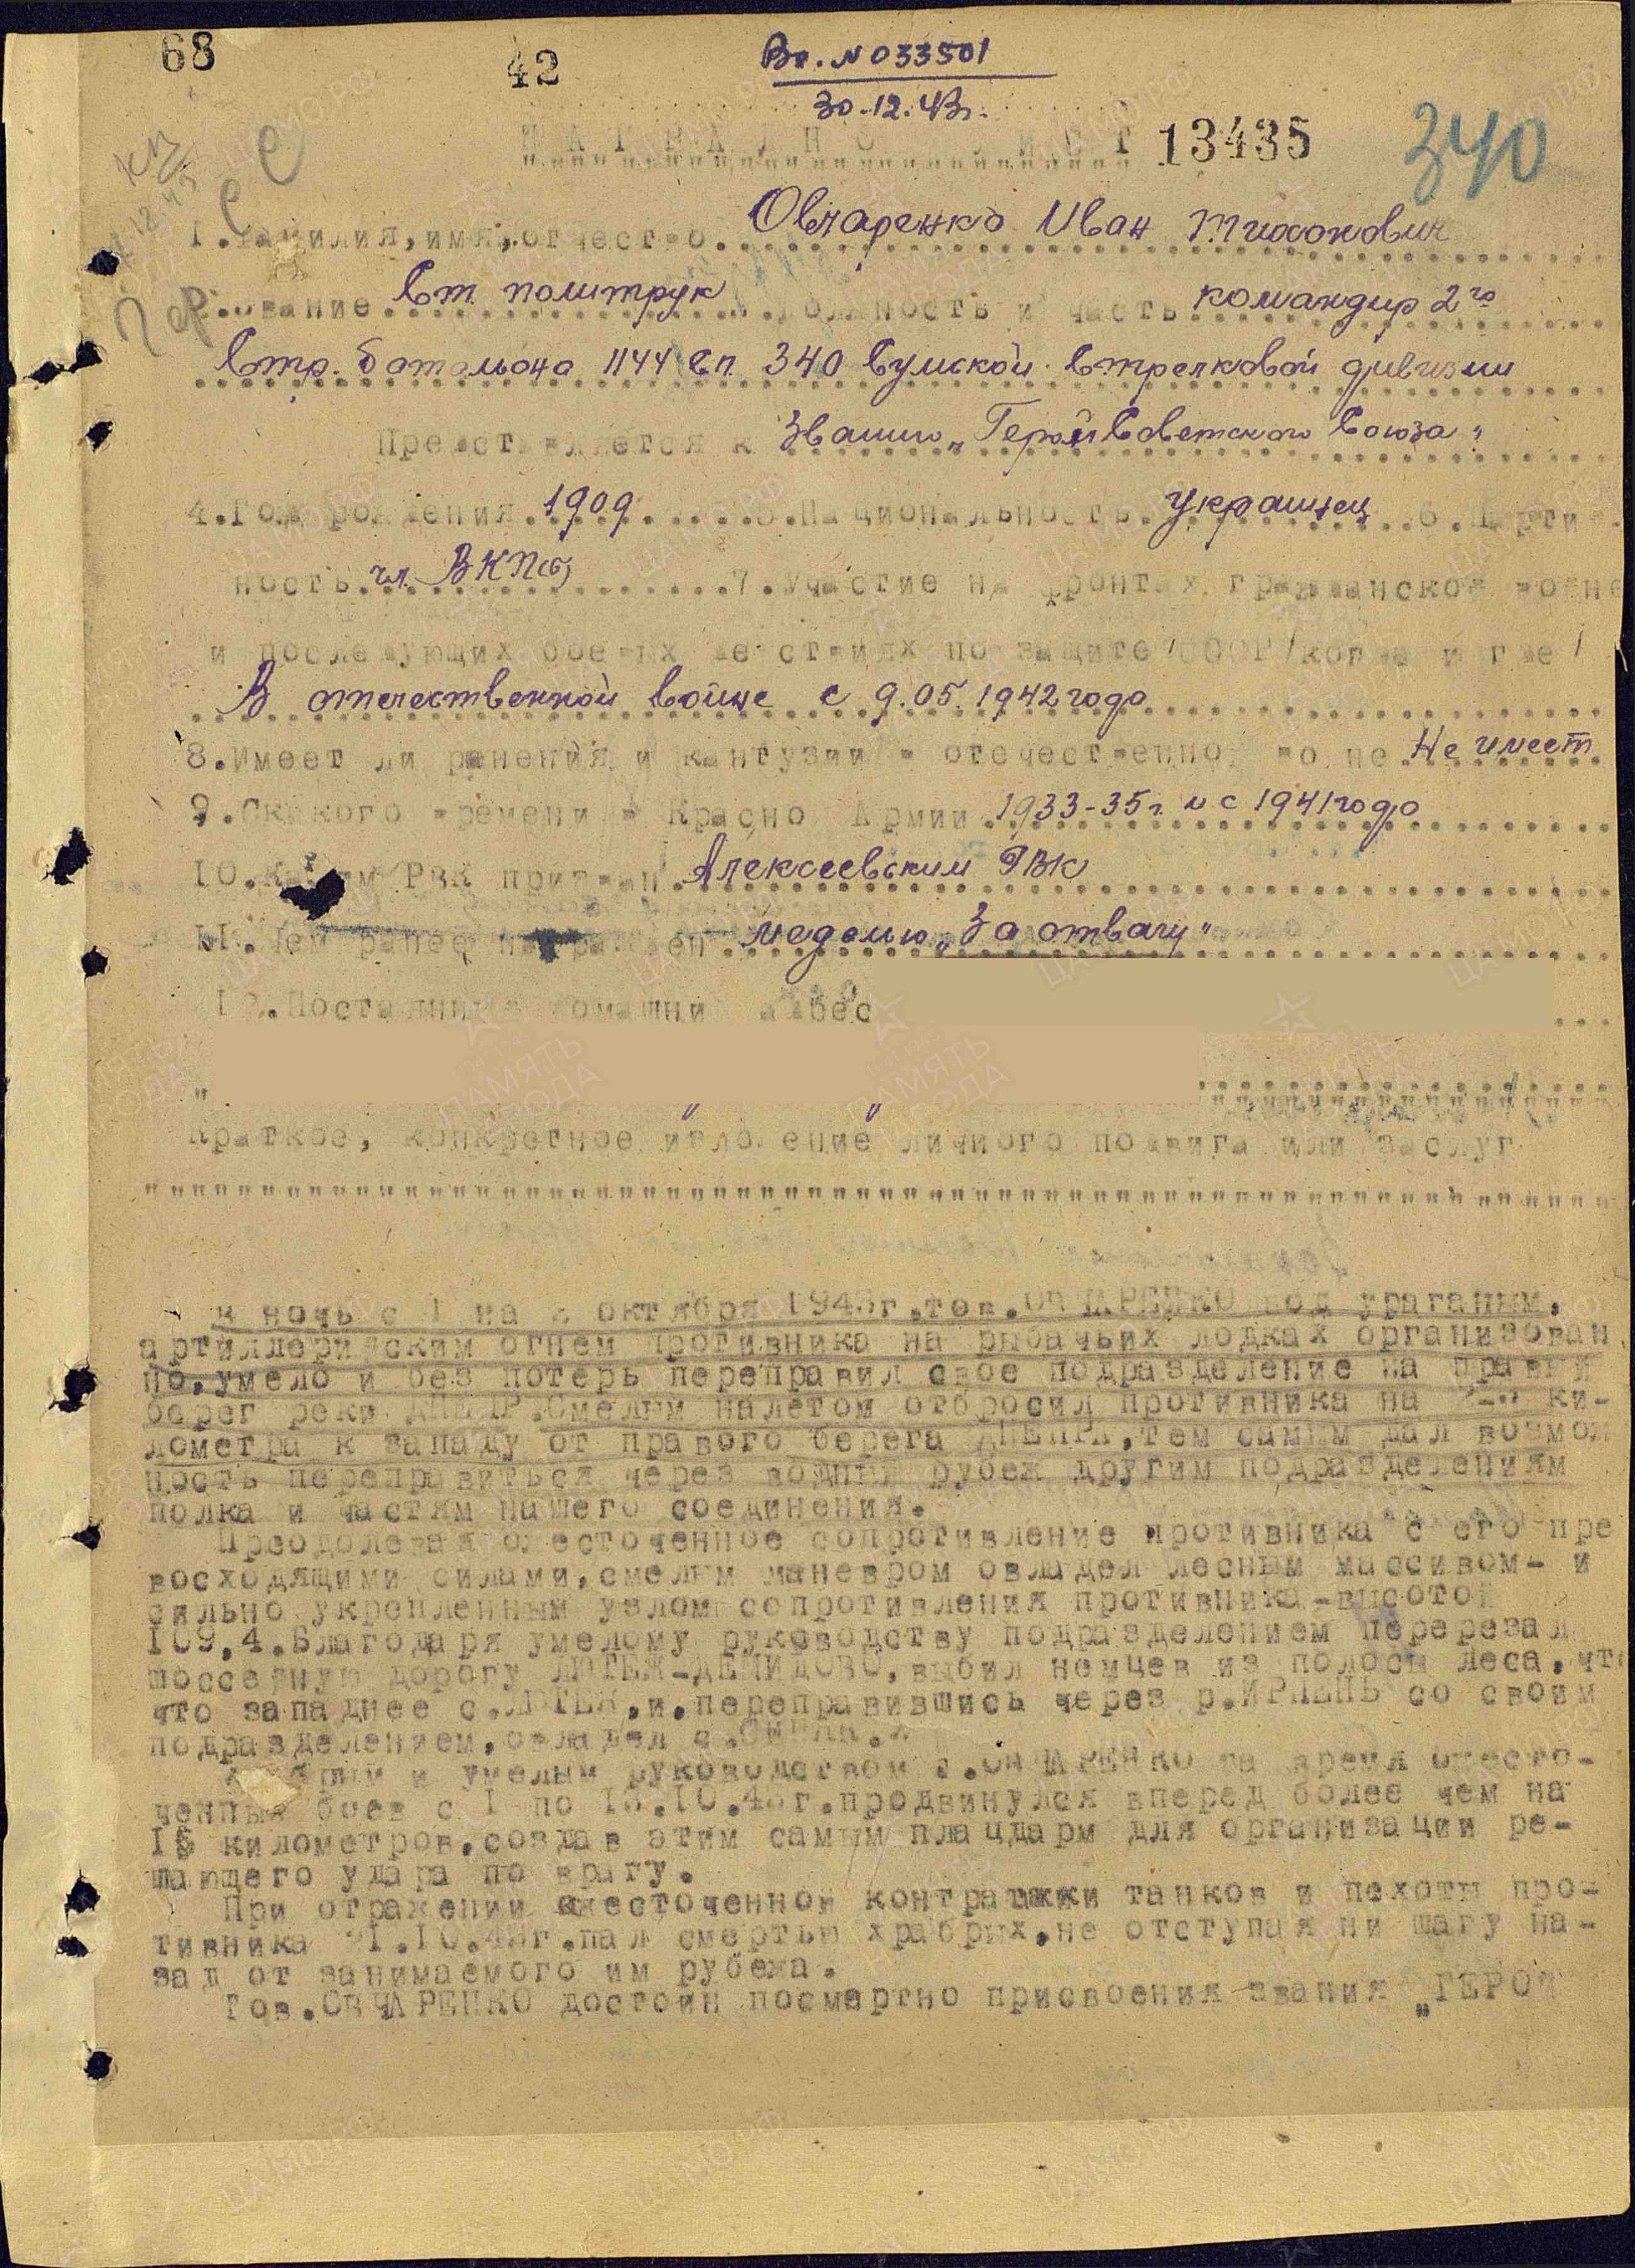 68
42
Вх. № 033501
30.12.43г.
НАГРАДНОЙ ЛИСТ 13435
340
1.Фамилия, имя, отчество. Овчаренко Иван Тихонович
2.Звание Ст. политрук 3.Должность и часть командир 2го
Стр. батальона 1144 СП 340 Сумской Стрелковой дивизии
Представляется к Званию „Герой Советского Союза"
4.Год рождения 1909 5.Национальность Украинец 6.Партий-
ность чл. ВКП(б) 7.Участие на фронтах гражданской войне
и последующих боевых действиях по защите СССР/когда и где/
В отечественной войне с 9.05.1942 года
8.Имеет ли ранения и контузии в отечественной войне Не имеет
9.С какого времени в Красной Армии 1933-35г. и с 1941 года
10.Каким РВК призван Алексеевским РВК
11.Чем ранее награжден медалью „За отвагу"
12.Постоянный домашний адрес
Краткое, конкретное изложение личного подвига или заслуг
В ночь с 1 на 2 октября 1943г.тов.ОВЧАРЕНКО под ураганым,
артиллерийским огнем противника на рыбачьих лодках организован
но,умело и без потерь переправил свое подразделение на правый
берег реки ДНЕПР.Смелым налетом отбросил противника на ки-
лометра к западу от правого берега ДНЕПРА,тем самым дал возмож
ность переправиться через водный рубеж другим подразделениям
полка и частям нашего соединения.
Преодолевая ожесточенное сопротивление противника с его пре
восходящими силами,смелым маневром овладел лесным массивом- и
сильно укрепленным узлом сопротивления противника-высотой
109,4.Благодаря умелому руководству подразделением перерезал
шоссейную дорогу ЛЮТЕЖ-ДЕМИДОВО,выбил немцев из полосы леса,что
что западнее с.ЛЮТЕЖ,и.переправившись через р.ИРПЕНЬ со своим
подразделением,овладел с.
и умелым руководством т.ОВЧАРЕНКО за время ожесто-
ченных боев с 1 по 10.43г.продвинулся вперед более чем на
километров,создав этим самым плацдарм для организации ре-
шающего удара по врагу.
При отражении ожесточенной контратаки танков и пехоты про-
тивника 10.43г.пал смертью храбрых,не отступая ни шагу на-
зад от занимаемого им рубежа.
Тов.ОВЧАРЕНКО достоин посмертно присвоения звания „ГЕРОЯ